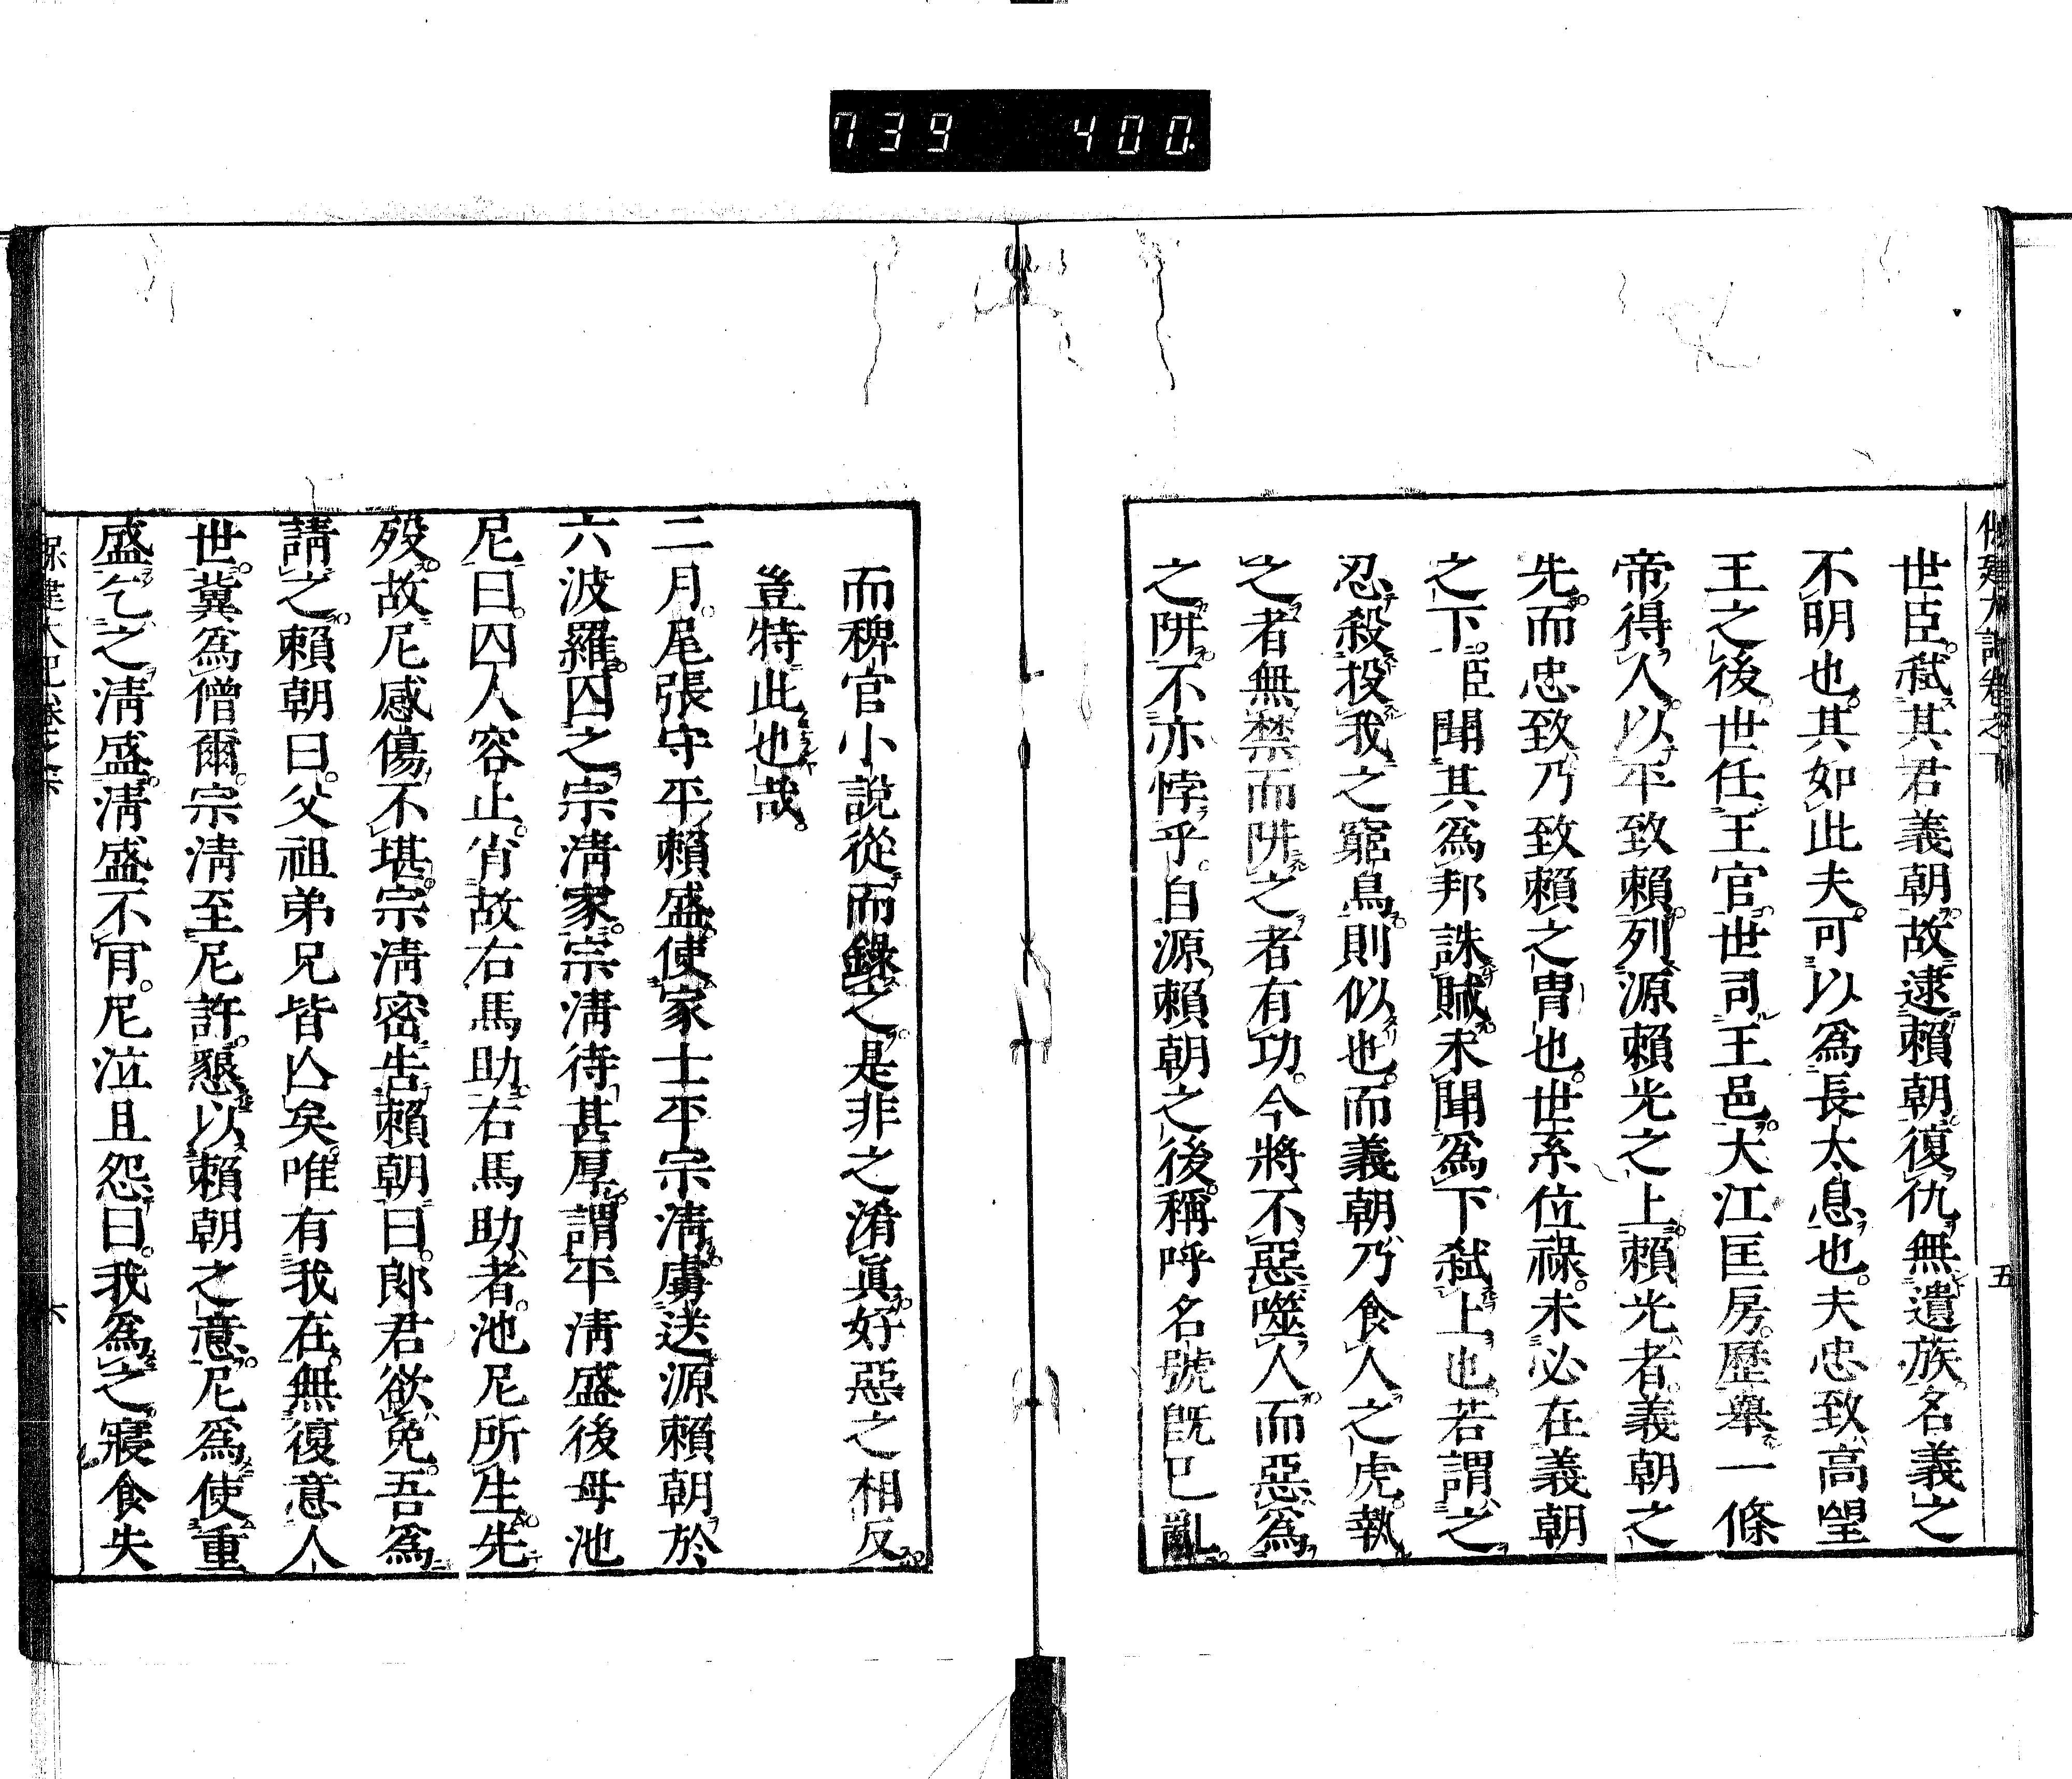 739 400.
世臣。弑其君義朝。故逮賴朝復仇。無遺族。名義之
不明也。其如此夫。可以為長太息也。夫忠致高望
王之後。世任王官。世司王邑。大江匡房。歷舉一條
帝得人。以平致賴。列源賴光之上。賴光者。義朝之
先。而忠致乃致賴之胄也。世系位祿。未必在義朝
之下。臣聞其為邦誅賊。未聞為下弑上也。若謂之
忍殺投我之窮鳥。則似也。而義朝乃食人之虎。執
之者無禁。而阱之者有功。今將不惡噬人。而惡為
之阱。不亦悖乎。自源賴朝之後。稱呼名號旣已亂。
五
而稗官小說從而錄之。是非之淆眞。好惡之相反。
豈特此也哉。
二月。尾張守平賴盛。使家士平宗淸虜送源賴朝於
六波羅。囚之宗淸家。宗淸待甚厚。謂平淸盛後母池
尼曰。囚人容止。肖故右馬助。右馬助者。池尼所生。先
歿。故尼感傷不堪。宗淸密告賴朝曰。郎君欲免。吾為
請之。賴朝曰。父祖弟兄皆亾矣。唯有我在。無復意人
世。冀為僧爾。宗淸至尼許。懇以賴朝之意。尼為使重
盛乞之淸盛。淸盛不肎。尼泣且怨曰。我為之寢食失
六